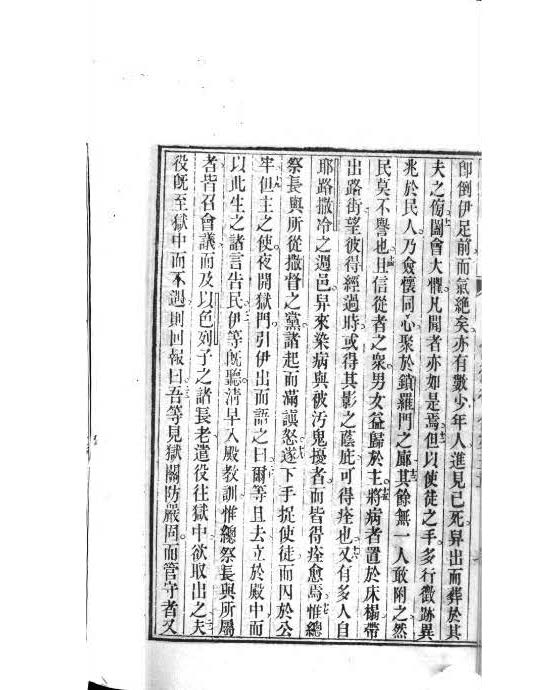 卽倒伊足前而氣絶矣亦有數少年人進見已死舁出而葬於其
夫之傍闔會大懼凡聞者亦如是焉但以使徒之手多行徵跡異
兆於民人乃僉懷同心聚於鎖羅門之廊其餘無一人敢附之然
民莫不譽也且信從者之衆男女益歸於主將病者置於床榻帶
出路街望彼得經過時或得其影之蔭庇可得痊也又有多人自
耶路撒冷之週邑舁來染病與被汚鬼擾者而皆得痊愈焉惟總
祭長與所從撒督之黨諸起而滿怒遂下手捉使徒而囚於公
牢但主之使夜開獄門引伊出而語之曰爾等且去立於殿中而
以此生之諸言告民伊等旣聽淸早入殿敎訓惟總祭長與所屬
者皆召會議而及以色列子之諸長老遣役往獄中欲取出之夫
役旣至獄中而不遇則回報曰吾等見獄關防嚴固而管守者又